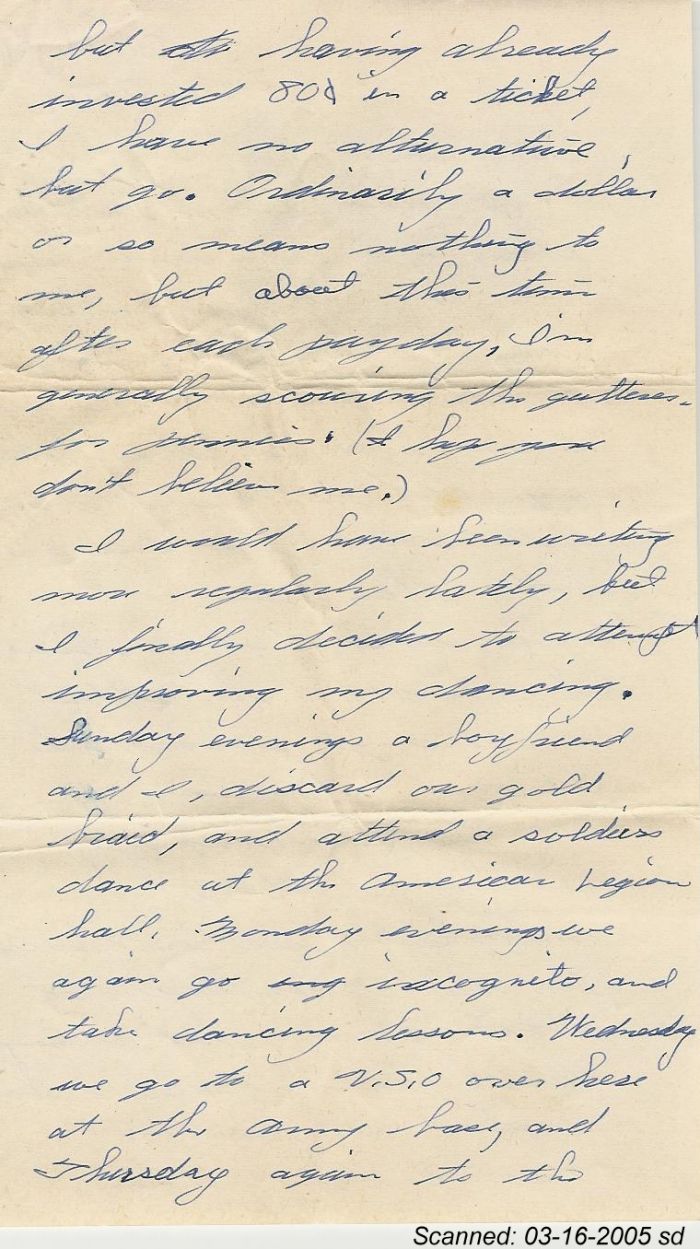 but having already
invested 80¢ in a ticket,
I have no alternative,
but go. Ordinarily a dollar
or so means nothing to
me, but about this time
after each payday, I'm
generally scouring the gutters
for pennies. (I hope you
don't believe me.)
I would have been writing
more regularly lately, but
I finally decided to attempt
improving my dancing.
Sunday evenings a boyfriend
and I, discard our gold
braid, and attend a soldiers
dance at the American Legion
hall. Monday evenings we
again go incognito, and
take dancing lessons. Wednesday
we go to a U.S.O over here
at the Army base, and
Thursday again to the
Scanned: 03-16-2005 sd